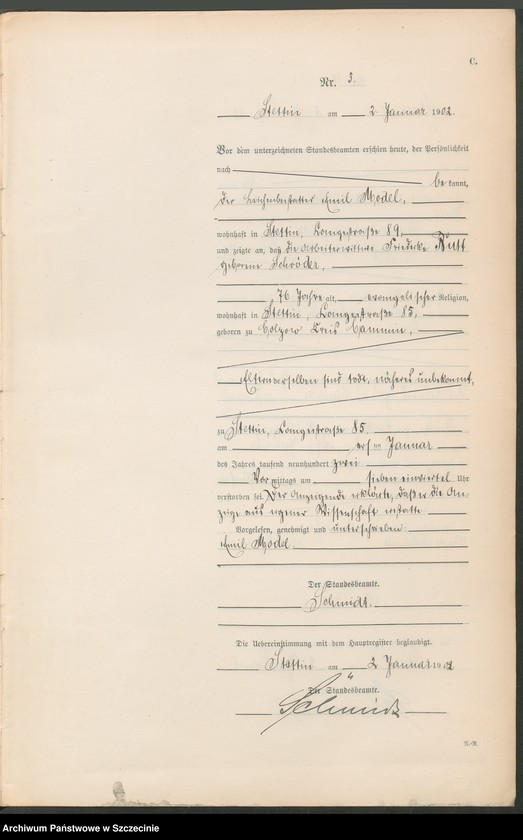 C.
Nr. 3.
Stettin am 2 Januar 1902.
Vor dem unterzeichneten Standesbeamten erschien heute, der Persönlichkeit
nach be kannt,
der Leichenbestatter Emil Model,
wohnhaft in Stettin, Langestraße 89,
und zeigte an, daß die Arbeiterwittwe Friedricke Nutt
geborene Schröder,
76 Jahre alt, evangelischer Religion,
wohnhaft in Stettin, Langestraße 85,
geboren zu Kolzow Kreis Cammin,
Eltern derselben sind todt, näheres unbekannt,
zu Stettin, Langestraße 85
am ersten Januar
des Jahres tausend neunhundert zwei
Vor mittags um sieben einviertel Uhr
verstorben sei. Der Anzeigende erklärte, daß er die An-
zeige aus eigener Wissenschaft erstatte
Vorgelesen, genehmigt und unterschrieben
Emil Model.
Der Standesbeamte.
Schmidt.
Die Uebereinstimmung mit dem Hauptregister beglaubigt.
Stettin am 2 Januar 1902
Der Standesbeamte.
Schmidt
Archiwum Państwowe w Szczecinie